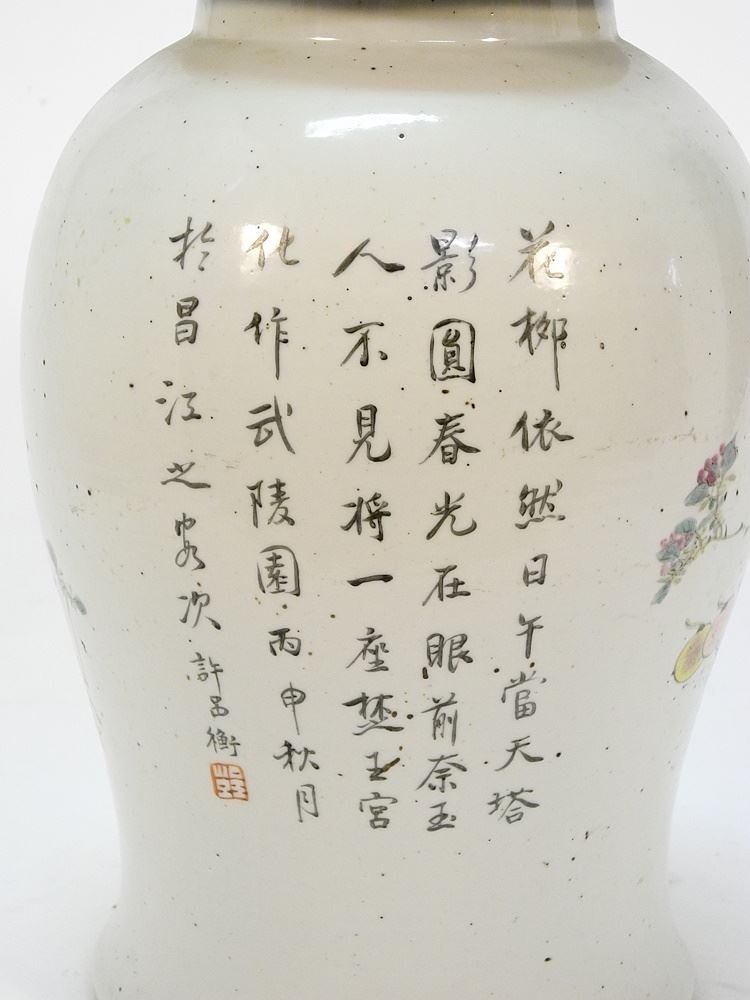 花柳依然日午當天塔
影圓春光在眼前奈玉
人不見將一座楚王宮
化作武陵園丙申秋月
於昌江之客次
許呂衡